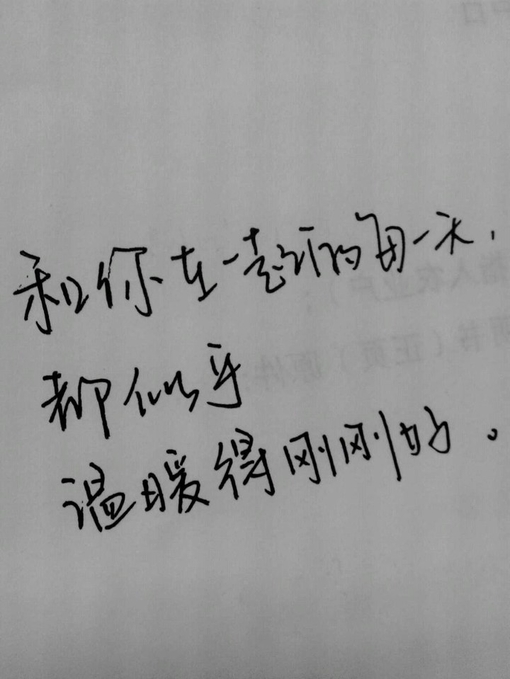 和你在一起的每一天,
都似乎
温暖得刚刚好。